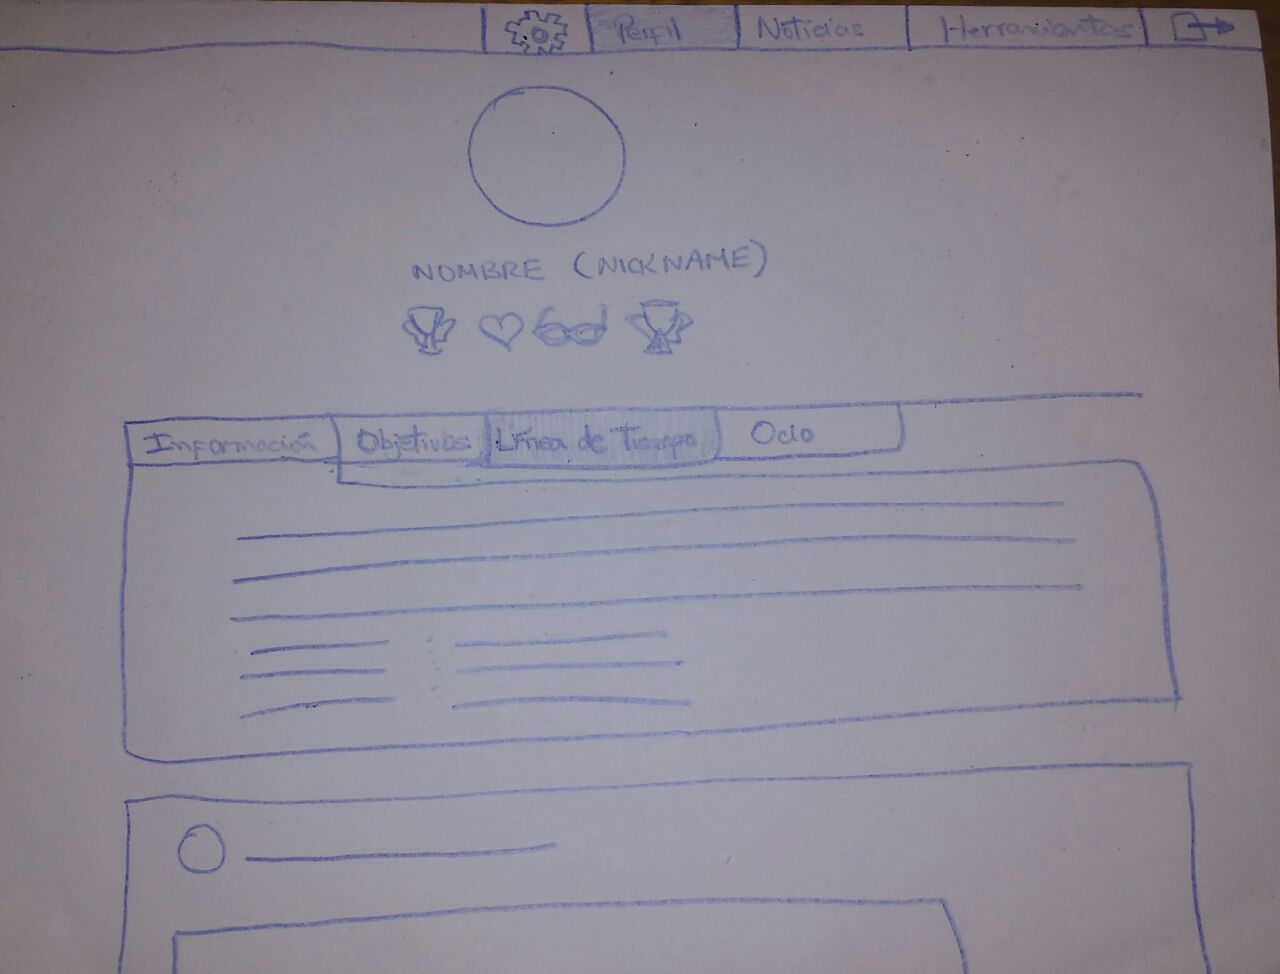 Perfil Noticias Herramientas
NOMBRE (NICKNAME)
Información Objetivos Línea de Tiempo Ocio